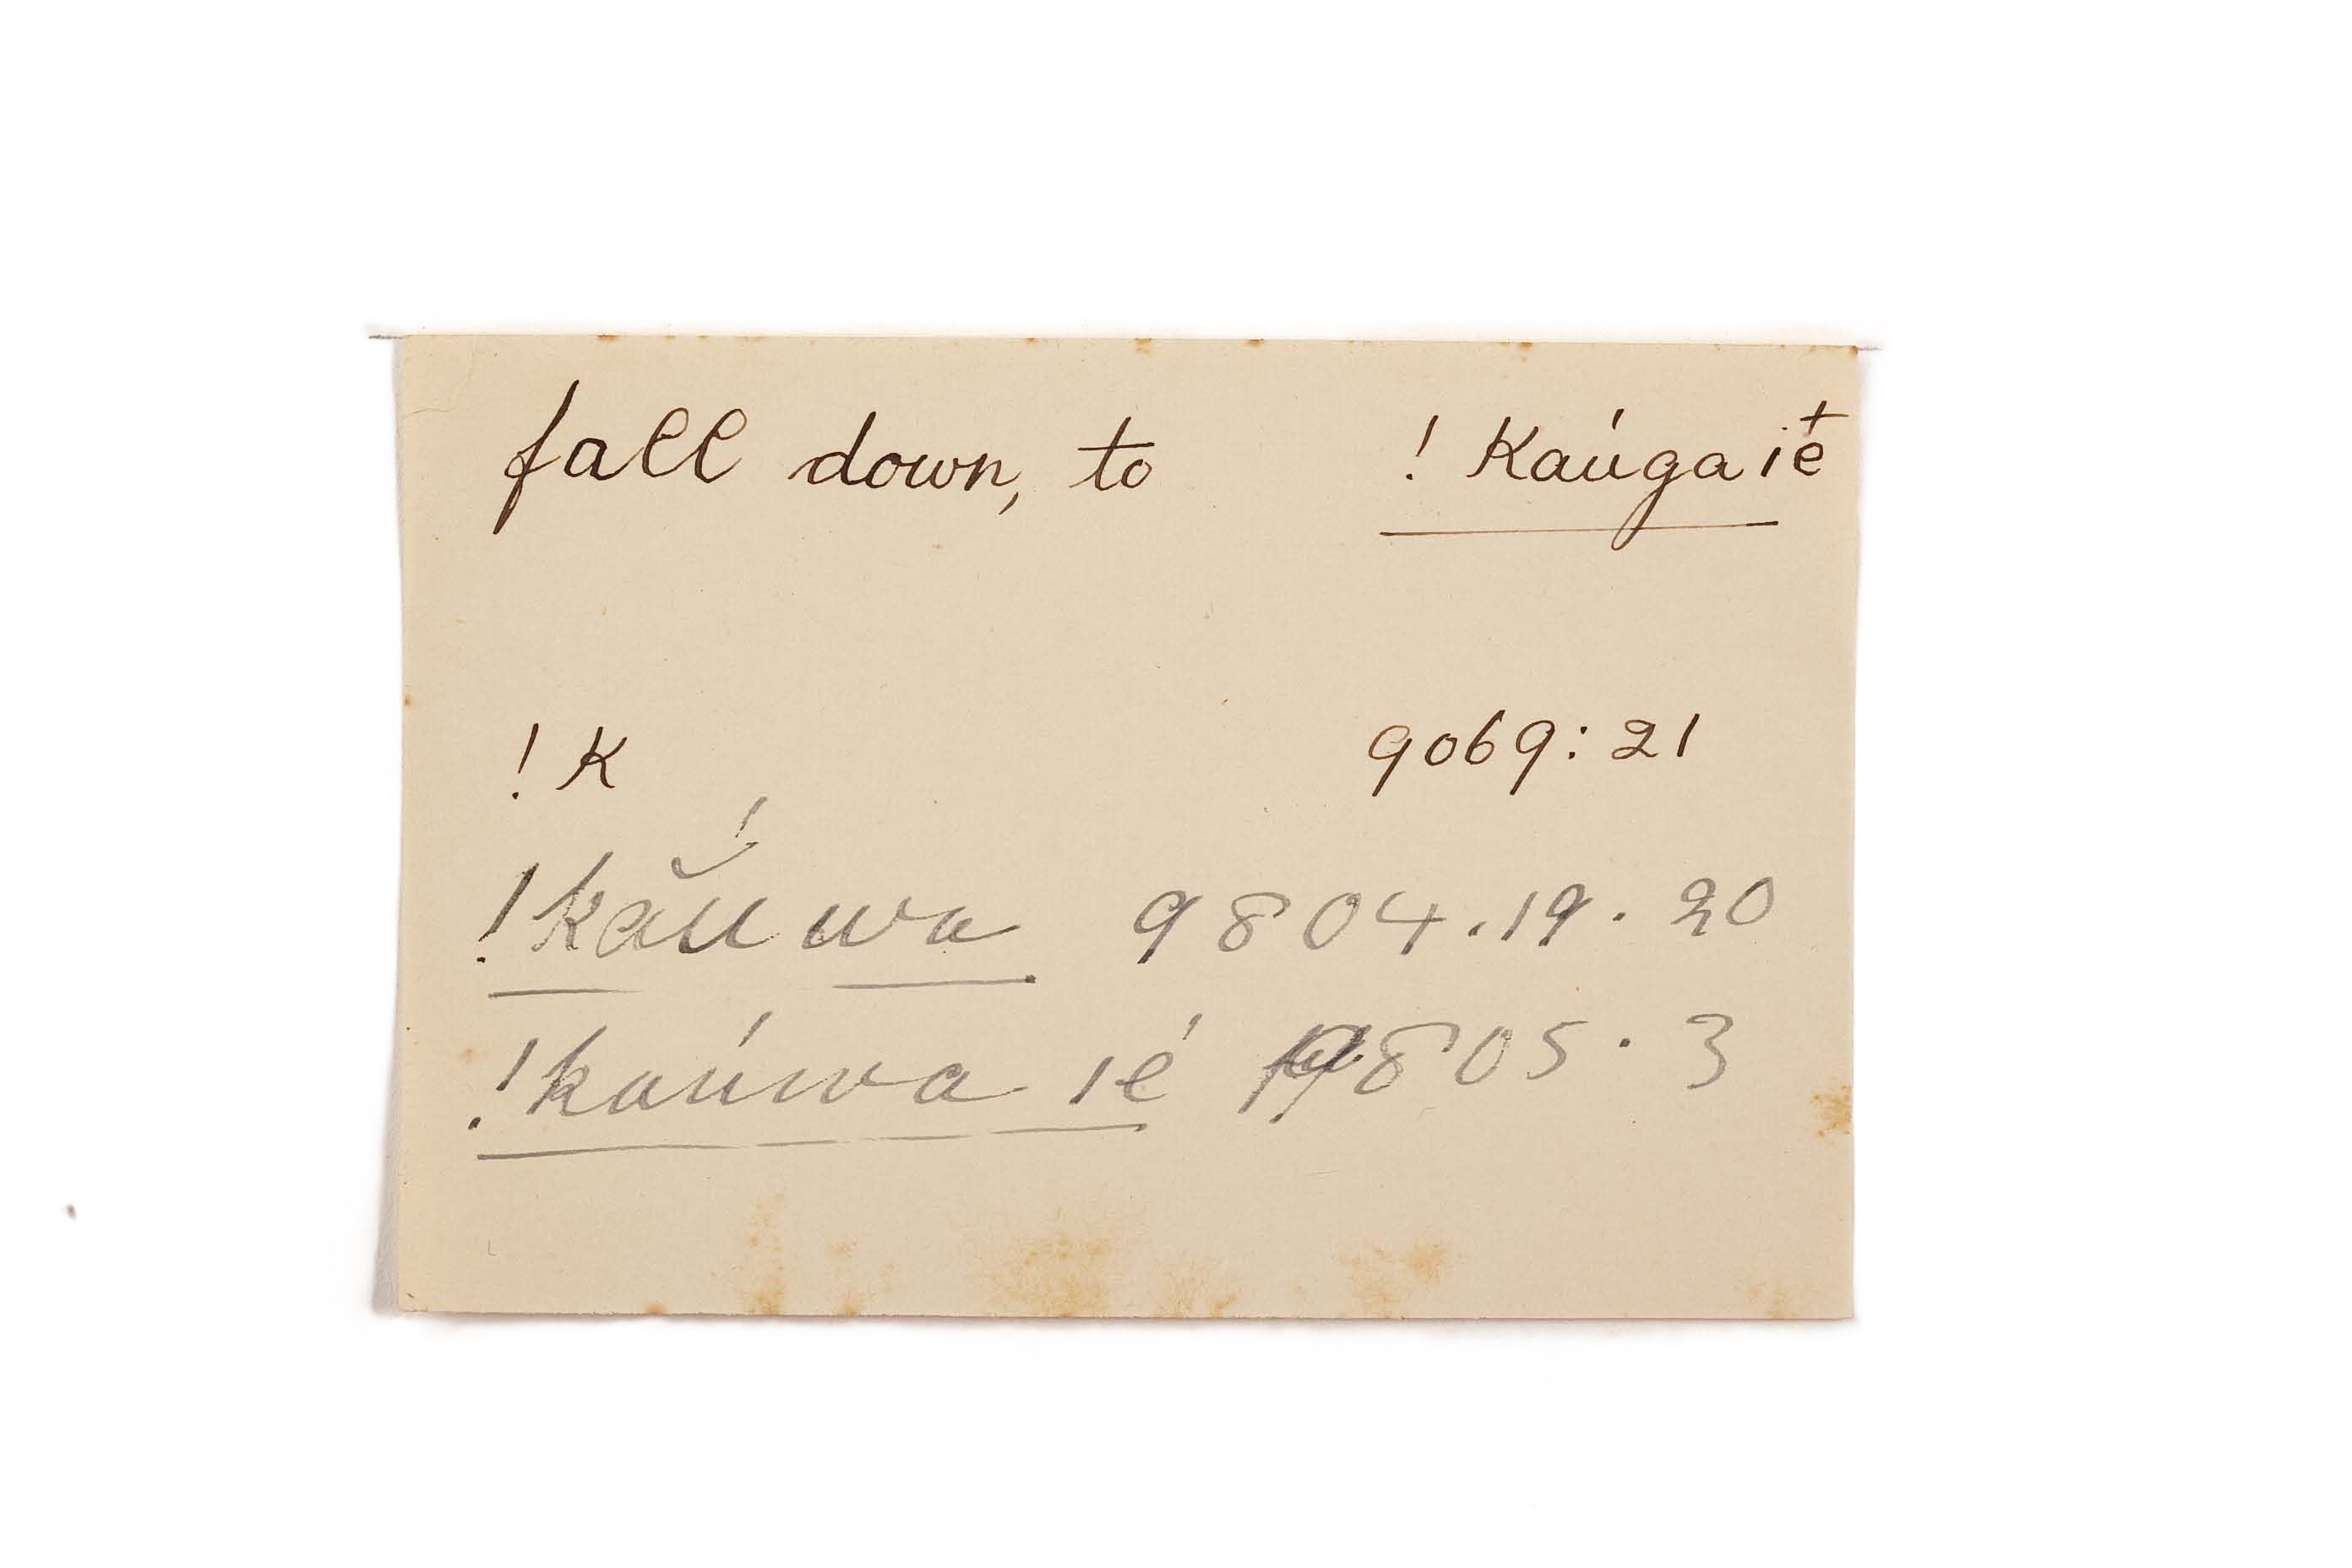 fall down, to ! Kaúga ié
! K 9069: 21
!kăú wa 9804.19.20
!kaúwa ié 9805.3